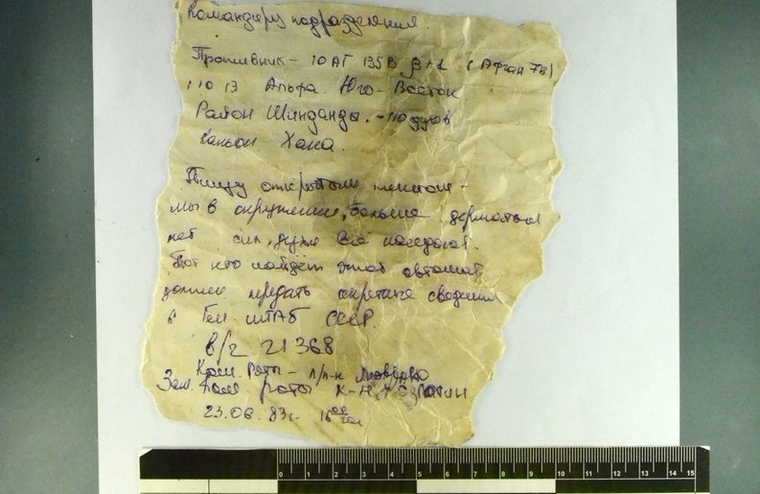 Командиру подразделения.
Противник - 10 АГ 135В β+1 (Афган 7в)
11013 Альфа Юго-Восток
Район Шинданда. - 110 духов
Каньон Хана.
Пишу открытым текстом -
мы в окружении, больше держаться
нет сил, духи все наседают.
Тот кто найдёт этот автомат
должен передать секретные сведения
в Ген. штаб СССР.
в/ч 21368
Ком. роты - п/п-к
Зам. Ком роты к-н
23.06.83г. 16 00
0 1 2 3 4 5 6 7 8 9 10 11 12 13 14 15